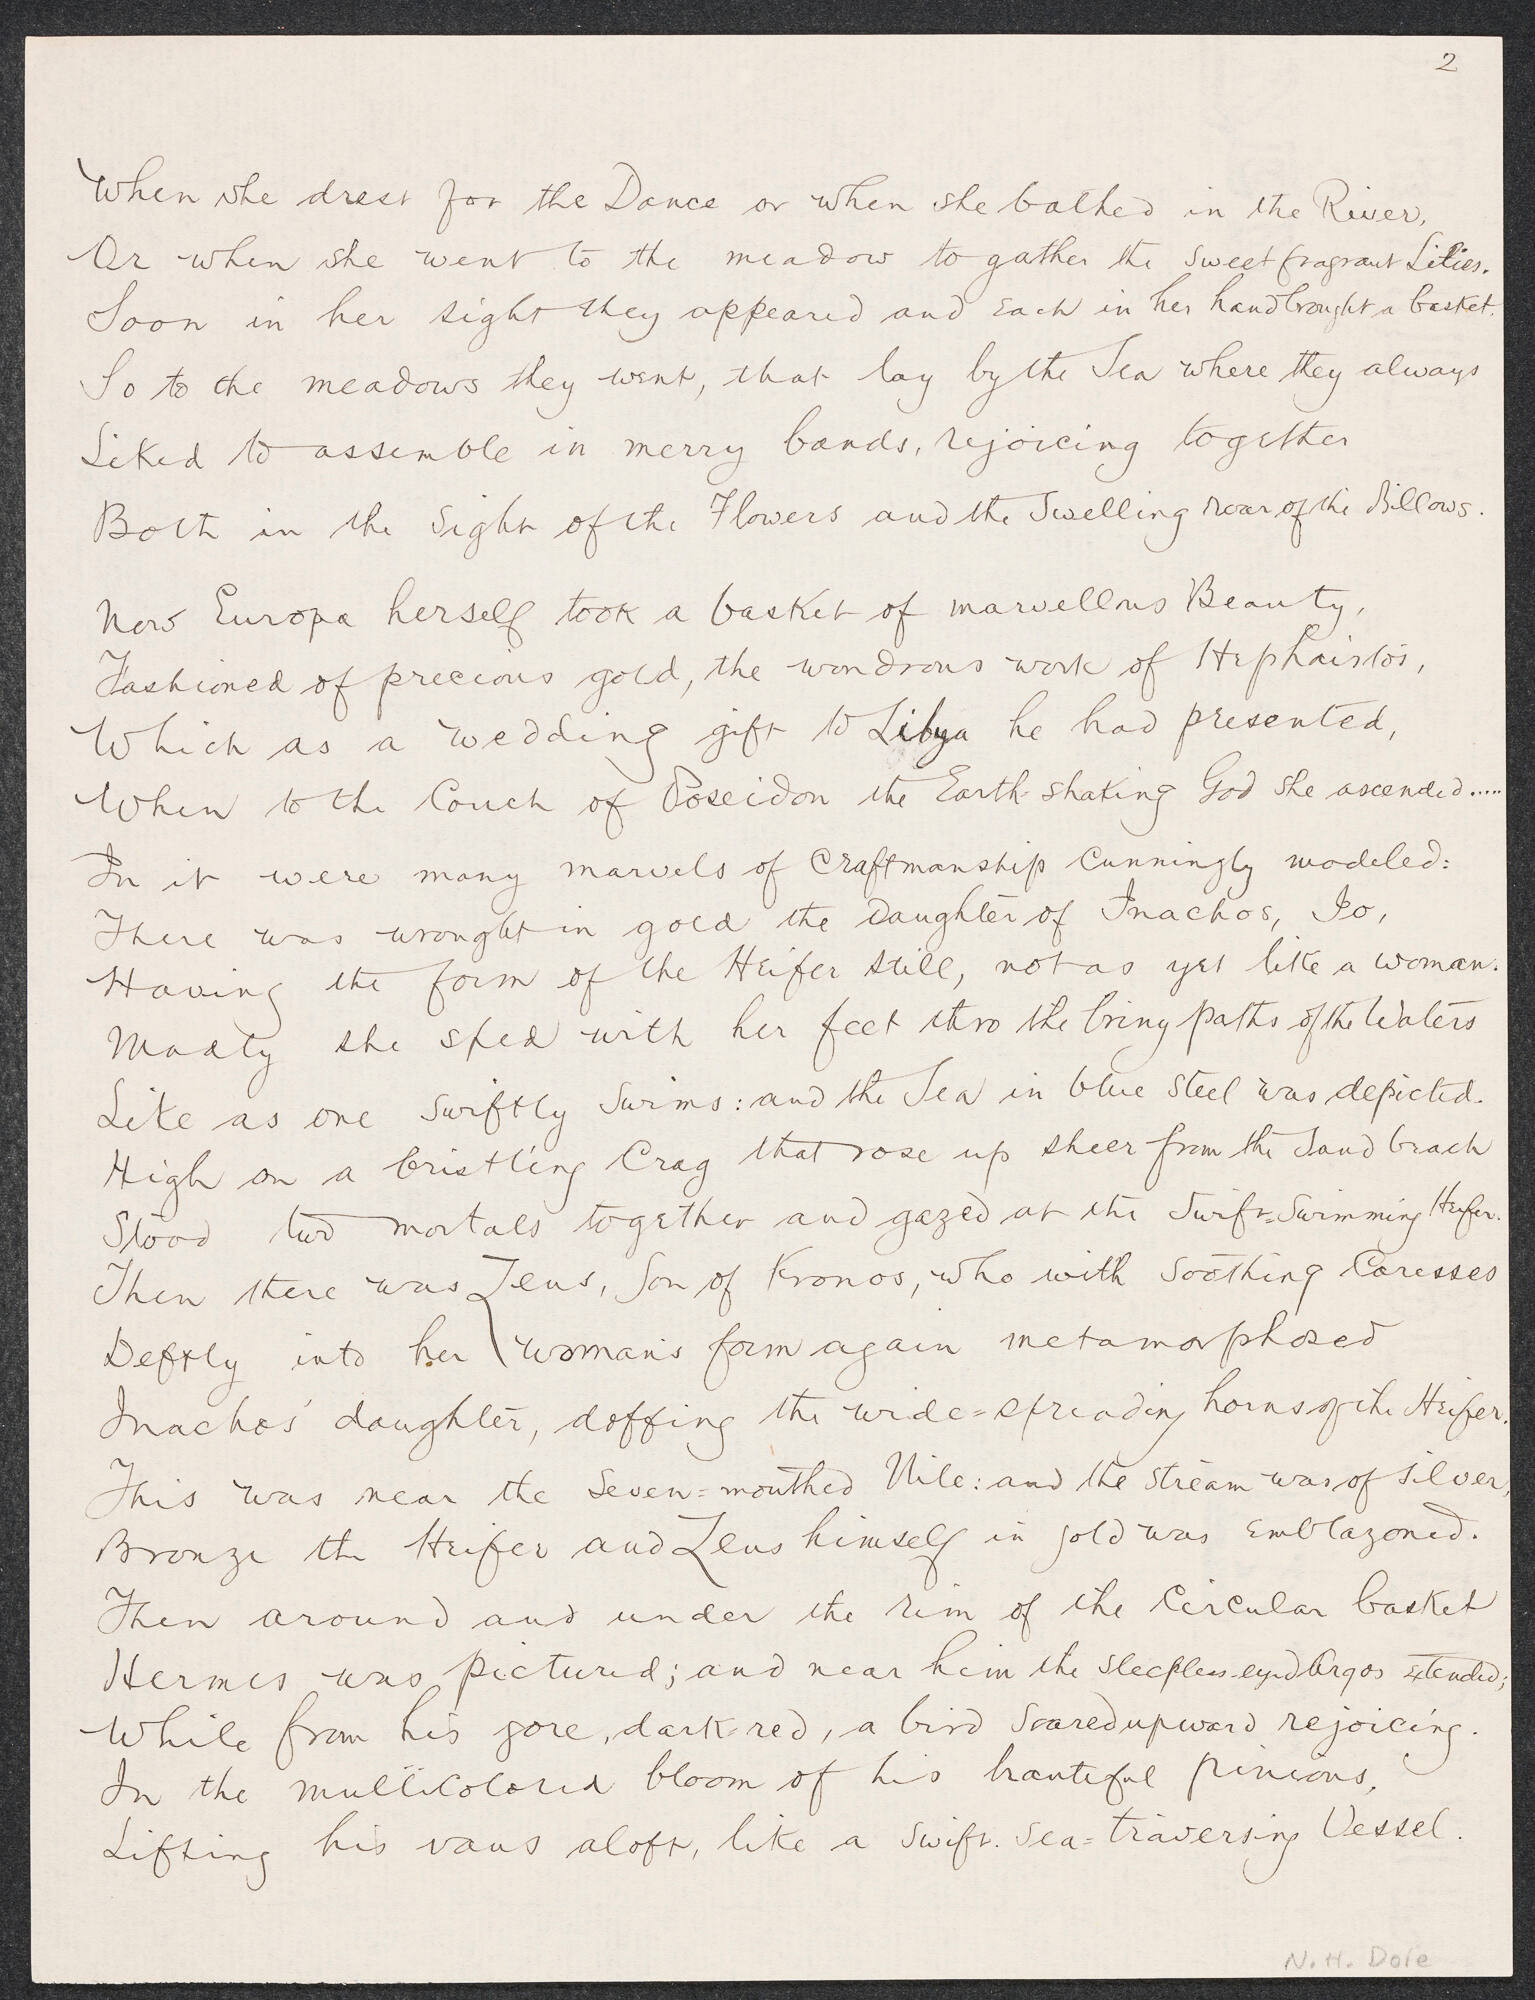 2
When she drest for the Dance or when she bathed in the River,
Or when she went to the meadow to gather the sweet fragrant Lilies.
Soon in her sight they appeared and each in her hand brought a basket.
So to the meadows they went, that lay by the Sea where they always
Liked to assemble in merry bands, rejoicing together
Both in the Sight of the Flowers and the Swelling roar of the Billows.
Now Europa herself took a basket of marvellous Beauty,
Fashioned of precious gold, the wondrous work of Hephaistos,
Which as a wedding gift to Libya he had presented,
When to the Couch of Poseidon the Earth-shaking God she ascended.....
In it were many marvels of craftmanship cunningly modeled:
There was wrought in gold the Daughter of Inachos, Io,
Having the form of the Heifer still, not as yet like a woman.
Madly she sped with her feet thro the briny paths of the Waters
Like as one swiftly swims: and the Sea in blue steel was depicted.
High on a bristling Crag that rose up sheer from the Sand beach
Stood two mortals together and gazed at the Swift-Swimming Heifer.
Then there was Zeus, Son of Kronos, who with Soothing Caresses
Deftly into her woman's form again metamorphosed
Inachos' daughter, doffing the wide-spreading horns of the Heifer.
This was near the Seven-mouthed Nile: and the stream was of silver,
Bronze the Heifer and Zeus himself in gold was emblazoned.
Then around and under the rim of the Circular basket
Hermes was pictured; and near him the sleepless-eyed Argos extended;
While from his gore, dark-red, a bird soared upward rejoicing.
In the multicolored bloom of his beautiful pinions,
Lifting his vans aloft, like a Swift-Sea-traversing Vessel.
N. H. Dole